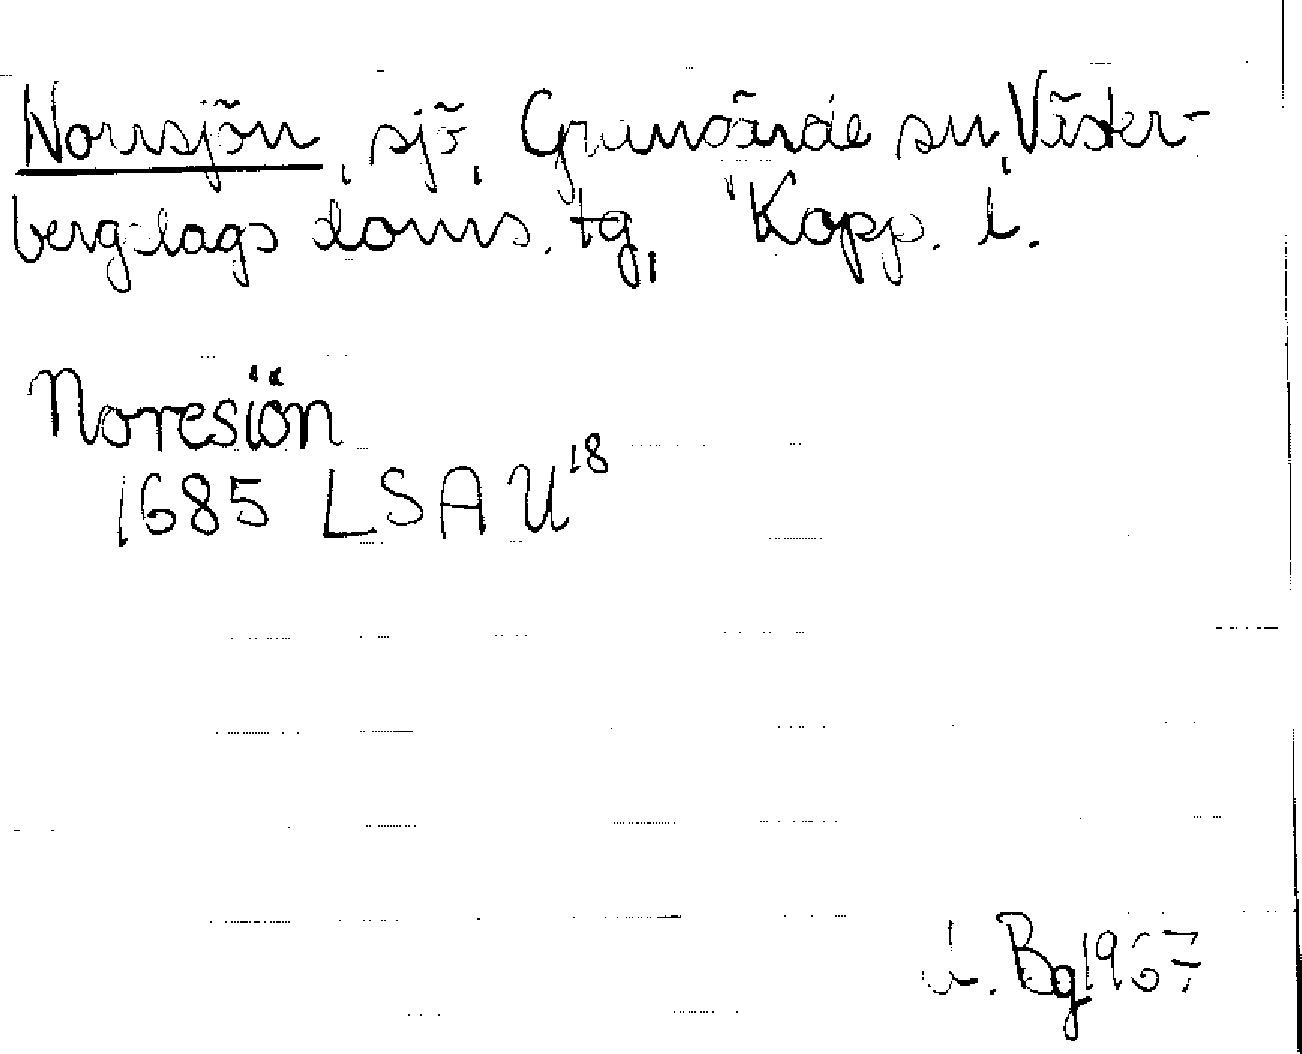 Norrsjön, sjö, Grangärde sn, Väster-
bergslags doms. tg, Kopp. l.
Noresiön
1685 LSA U18
Bg 1967